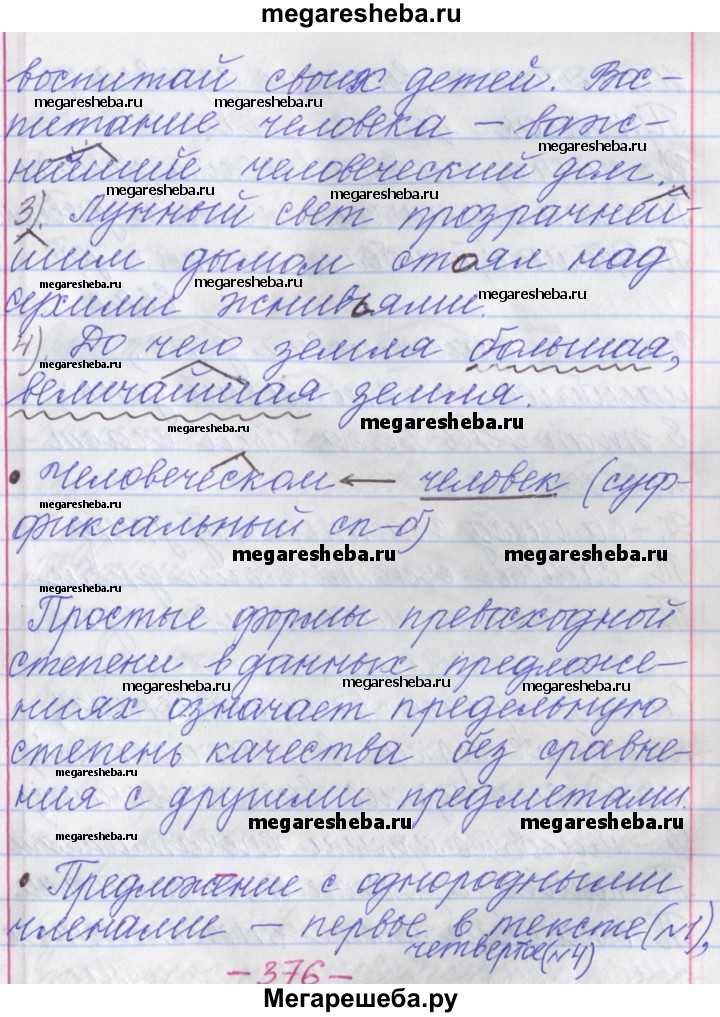 megaresheba.ru
воспитай своих детей. Вос-
megaresheba.ru megaresheba.ru
питание человека – важ-
megaresheba.ru
нейший человеческий долг.
megaresheba.ru megaresheba.ru
3). Лунный свет прозрачней-
шим дымом стоял над
megaresheba.ru megaresheba.ru
сухими жнивьями.
megaresheba.ru
4). До чего земля большая,
величайшая земля.
megaresheba.ru megaresheba.ru
• Человеческом ← человек (суф-
megaresheba.ru
фиксальный сп-б)
megaresheba.ru megaresheba.ru
megaresheba.ru
Простые формы превосходной
степени в данных предложе-
megaresheba.ru megaresheba.ru megaresheba.ru
ниях означает предельную
степень качества без сравне-
megaresheba.ru
ния с другими предметами.
megaresheba.ru megaresheba.ru
megaresheba.ru
• Предложение с однородными
членами – первое в тексте (№1),
четвертое (№4)
– 376 –
Мегарешеба.ру